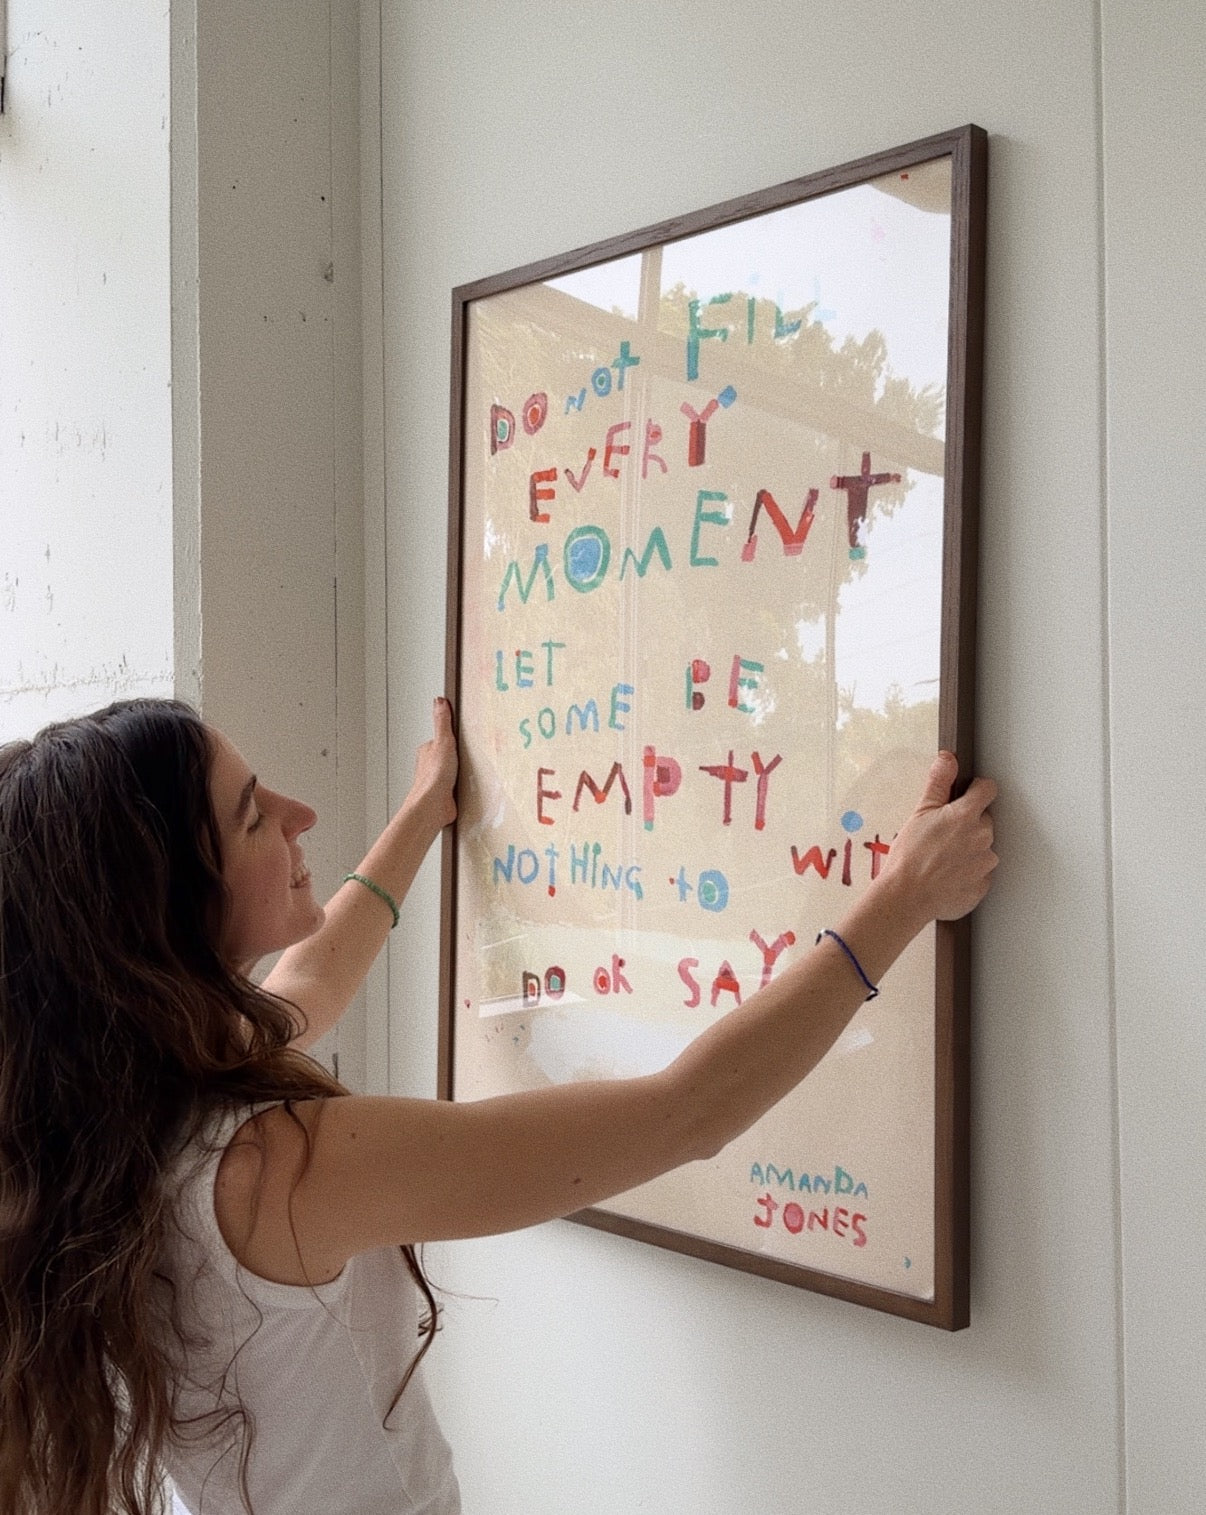 DO NOT FILL
EVERY
MOMENT
LET
SOME BE
EMPTY
WIT
NOTHING TO
DO OR SAY
AMANDA
JONES